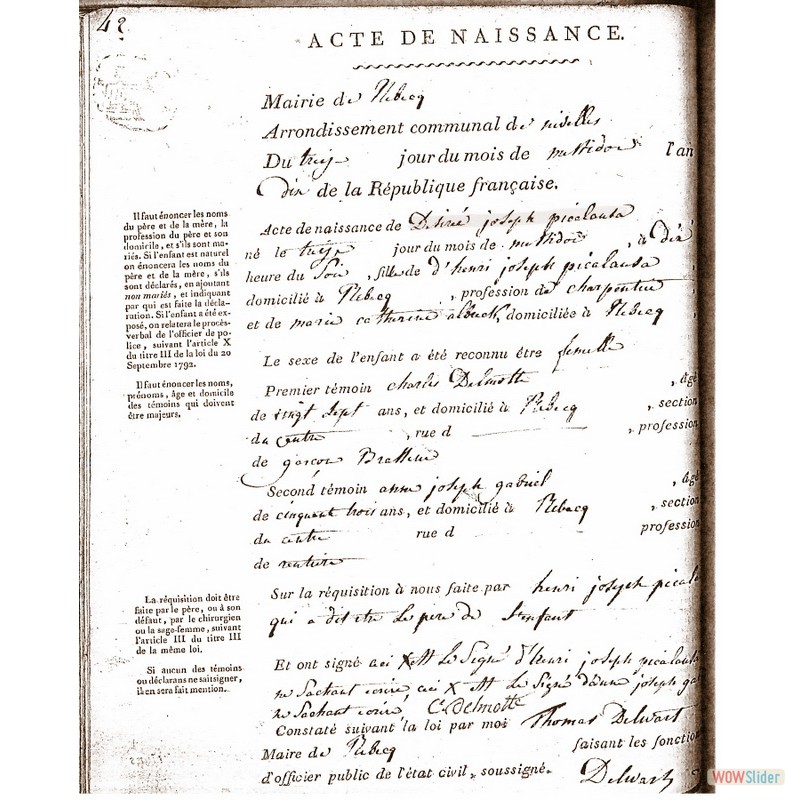 42
ACTE DE NAISSANCE.
Mairie de Rebecq
Arrondissement communal de nivelles
Du treize jour du mois de messidor l'an
dix de la République française.
Il faut énoncer les noms
du père et de la mère, la
profession du père et son
domicile, et s'ils sont ma-
riés. Si l'enfant est naturel
on énoncera les noms du
père et de la mère, s'ils
sont déclarés, en ajoutant
non mariés, et indiquant
par qui est faite la décla-
ration. Si l'enfant a été ex-
posé, on relatera le procès-
verbal de l'officier de po-
lice, suivant l'article X
du titre III de la loi du 20
Septembre 1792.
Il faut énoncer les noms,
prénoms, âge et domicile
des témoins qui doivent
être majeurs.
Acte de naissance de Desiré joseph picalausa
né le treize jour du mois de messidor, à dix
heure du Soir, fille de d'henri joseph picalausa
domicilié à Rebecq, profession de charpentier,
et de marie catherine, domiciliée à Rebecq,
Le sexe de l'enfant a été reconnu être femelle
Premier témoin charles Delmotte, âgé
de vingt sept ans, et domicilié à Rebecq, section
du centre, rue d, profession
de garçon Brasseur
Second témoin anne joseph gabriel, âgé
de cinquant trois ans, et domicilié à Rebecq, section
du centre rue d profession
de rentiere
La réquisition doit être
faite par le père, ou à son
défaut, par le chirurgien
ou la sage-femme, suivant
l'article III du titre III
de la même loi.
Si aucun des témoins
ou déclarans ne sait signer,
il en sera fait mention.
Sur la réquisition à nous faite par henri joseph pical
qui a dit etre le pere de l'enfant
Et ont signé ceci X est le Signé d'henri joseph picalausa
ne Sachant ecrire ceci X est le Signé d'anne joseph ga
ne Sachant ecrire C. delmotte
Constaté suivant la loi par moi Thomas Delwart
Maire de Rebecq faisant les fonction
d'officier public de l'état civil, soussigné. Delwart
WOWSlider